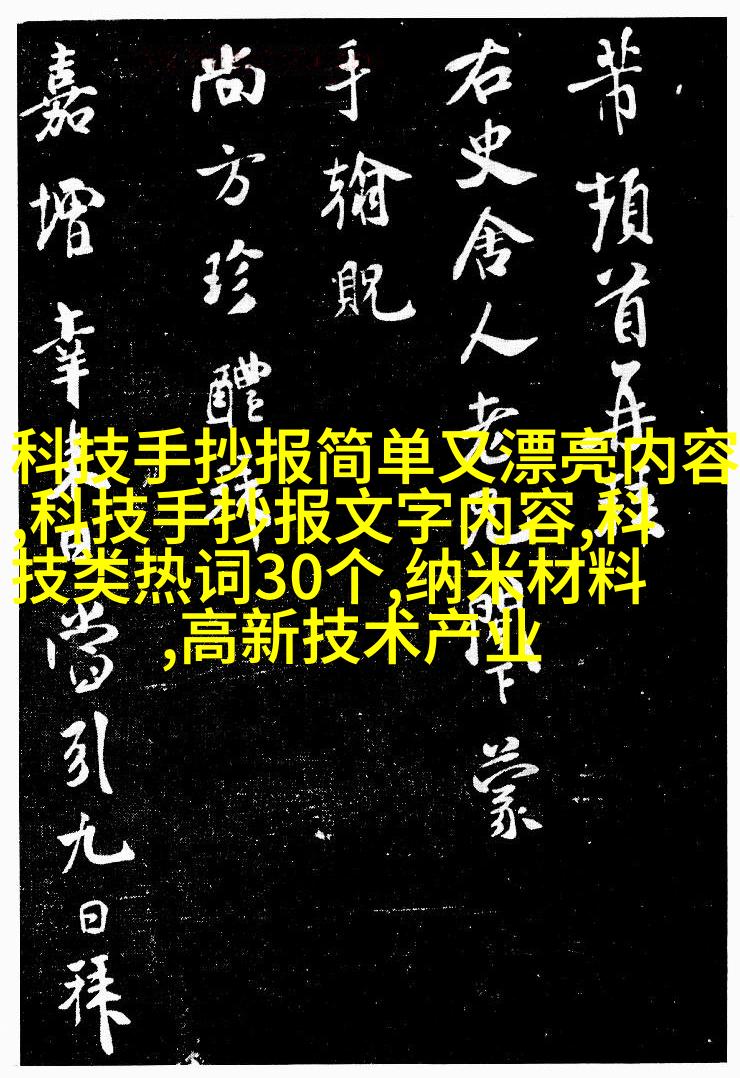 芾頓首再拜
右史舍人老兄閤下蒙
手翰貺
尚方珍醴
嘉增幸來日當引九日拜
科技手抄报简单又漂亮内容
,科技手抄报文字内容,科
技类热词30个,纳米材料
,高新技术产业